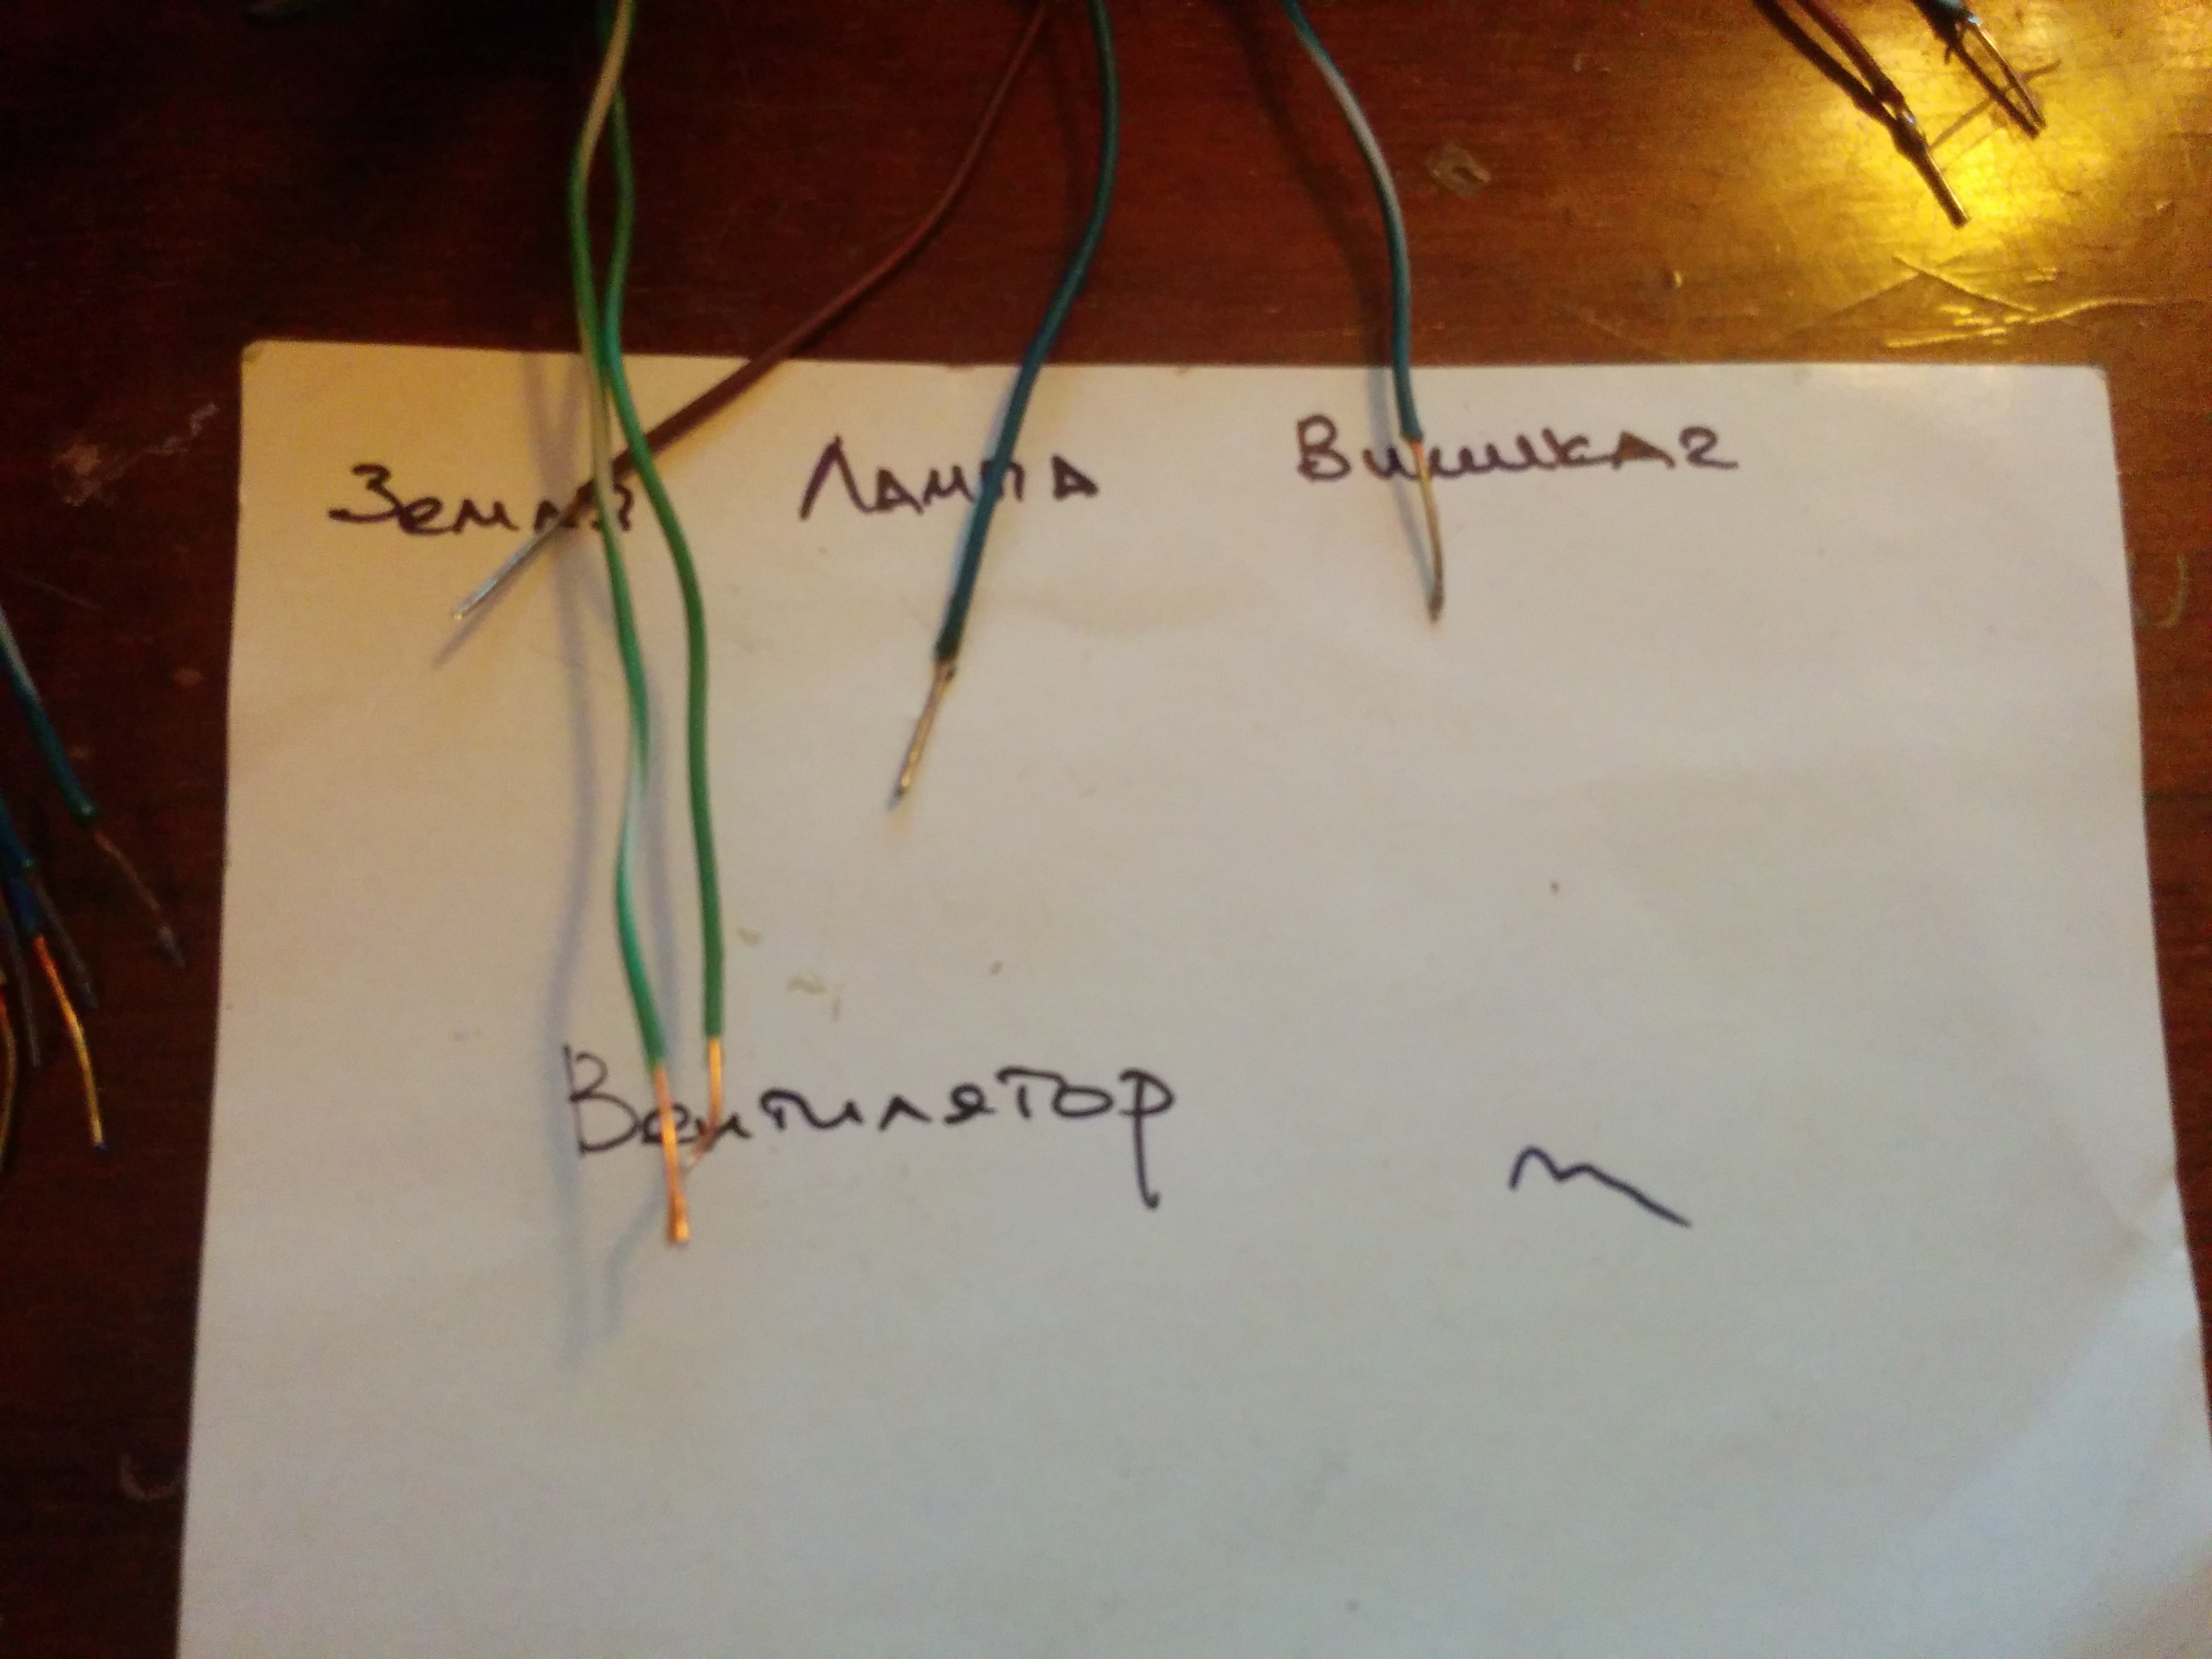 Земля Лампа Вишка2
Вентилятор